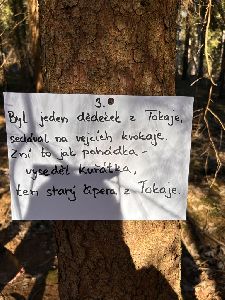 3.
Byl jeden dědeček z Tokaje,
sedával na vejcích kvokaje.
Zní to jak pohádka -
vyseděl kuřátka,
ten starý čipera z Tokaje.